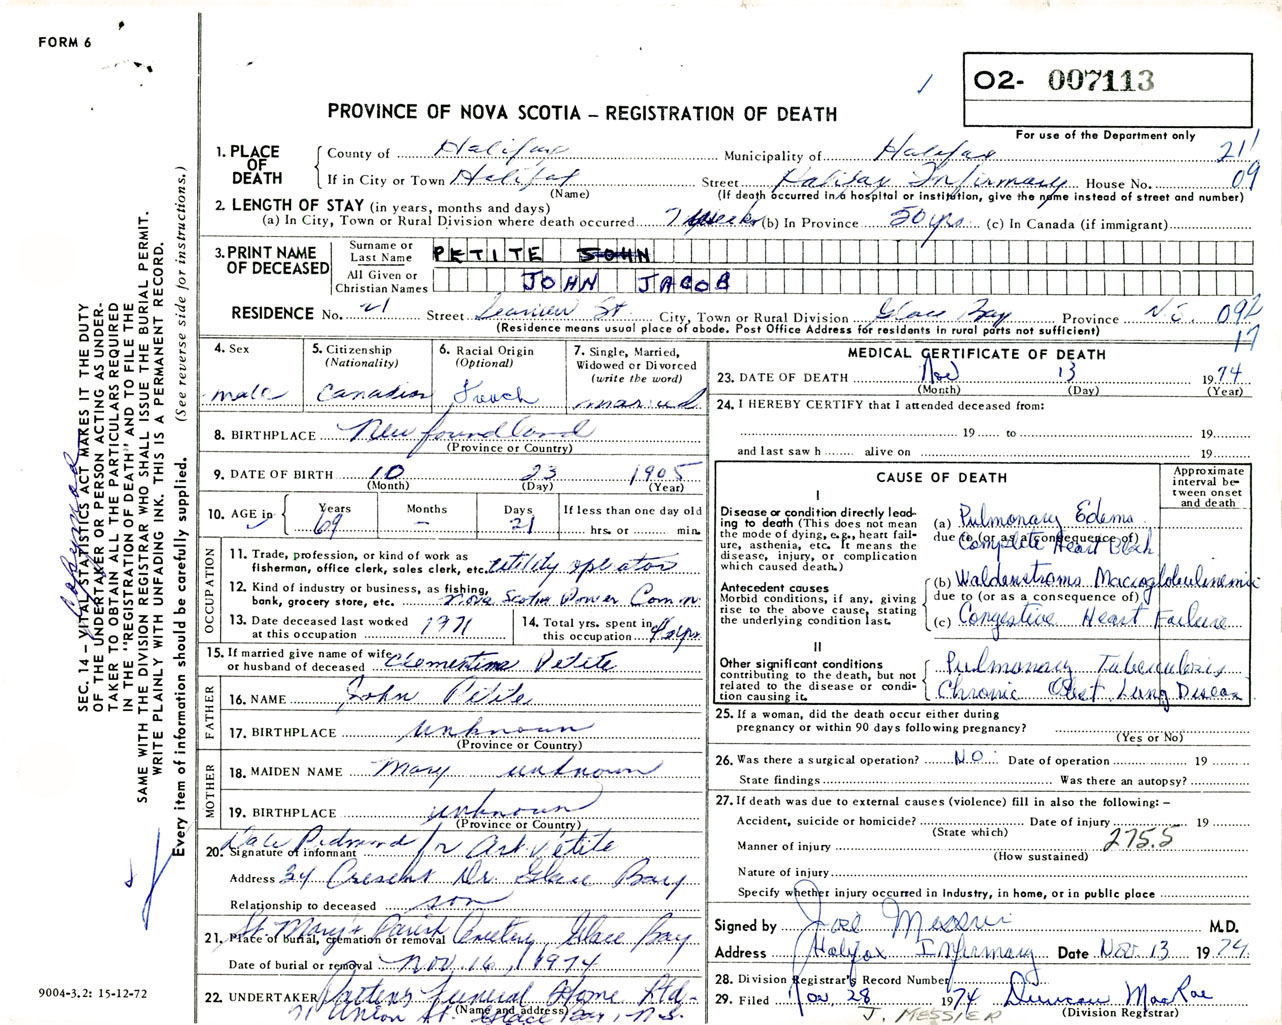 FORM 6
O2- 007113
PROVINCE OF NOVA SCOTIA – REGISTRATION OF DEATH
For use of the Department only
1. PLACE OF DEATH
County of Halifax Municipality of Halifax 21
If in City or Town Halifax Street Halifax Infirmary House No. 09
(Name) (If death occurred in a hospital or institution, give the name instead of street and number)
2. LENGTH OF STAY (in years, months and days)
(a) In City, Town or Rural Division where death occurred 7 weeks (b) In Province 50 yrs. (c) In Canada (if immigrant)
3. PRINT NAME OF DECEASED
Surname or Last Name PETITE JOHN
All Given or Christian Names JOHN JACOB
RESIDENCE No. 21 Street Seaview St. City, Town or Rural Division Glace Bay Province N.S. 092
(Residence means usual place of abode. Post Office Address for residents in rural parts not sufficient) 17
4. Sex male
5. Citizenship (Nationality) Canadian
6. Racial Origin (Optional)
7. Single, Married, Widowed or Divorced (write the word) married
8. BIRTHPLACE Newfoundland
(Province or Country)
9. DATE OF BIRTH 10 23 1905
(Month) (Day) (Year)
10. AGE in Years 69 Months – Days 21 If less than one day old
hrs. or min.
OCCUPATION
11. Trade, profession, or kind of work as fisherman, office clerk, sales clerk, etc. utility operator
12. Kind of industry or business, as fishing, bank, grocery store, etc. Nova Scotia Power Comm
13. Date deceased last worked at this occupation 1971
14. Total yrs. spent in this occupation 42 yrs
15. If married give name of wife or husband of deceased Clementina Petite
FATHER
16. NAME John Petite
17. BIRTHPLACE unknown
(Province or Country)
MOTHER
18. MAIDEN NAME Mary unknown
19. BIRTHPLACE unknown
(Province or Country)
20. Signature of informant for Art Petite
Address 34 Cresent Dr. Glace Bay
Relationship to deceased son
21. Place of burial, cremation or removal St. Mary's Parish Cemetery Glace Bay
Date of burial or removal Nov. 16, 1974
22. UNDERTAKER Pattens Funeral Home Ltd-
(Name and address) 71 Union St. Glace Bay, N.S.
MEDICAL CERTIFICATE OF DEATH
23. DATE OF DEATH Nov 13 1974
(Month) (Day) (Year)
24. I HEREBY CERTIFY that I attended deceased from:
19 to 19
and last saw h alive on 19
CAUSE OF DEATH
Approximate interval between onset and death
I
Disease or condition directly leading to death (This does not mean the mode of dying, e.g., heart failure, asthenia, etc. It means the disease, injury, or complication which caused death.)
(a) Pulmonary Edema
due to (or as a consequence of)
Complete Heart Block
Antecedent causes
Morbid conditions, if any, giving rise to the above cause, stating the underlying condition last.
(b) Waldenstroms Macroglobulinemia
due to (or as a consequence of)
(c) Congestive Heart Failure
II
Other significant conditions contributing to the death, but not related to the disease or condition causing it.
Pulmonary Tuberculosis
Chronic Obst Lung Disease
25. If a woman, did the death occur either during pregnancy or within 90 days following pregnancy?
(Yes or No)
26. Was there a surgical operation? No Date of operation 19
State findings Was there an autopsy?
27. If death was due to external causes (violence) fill in also the following: –
Accident, suicide or homicide? Date of injury 19
(State which) 275.5
Manner of injury
(How sustained)
Nature of injury
Specify whether injury occurred in industry, in home, or in public place
Signed by M.D.
Address Halifax Infirmary Date Nov. 13 1974.
28. Division Registrar's Record Number
29. Filed Nov 28 1974 Duncan MacRae
(Division Registrar)
J. MESSIER
SEC. 14 – VITAL STATISTICS ACT MAKES IT THE DUTY
OF THE UNDERTAKER OR PERSON ACTING AS UNDER-
TAKER TO OBTAIN ALL THE PARTICULARS REQUIRED
IN THE "REGISTRATION OF DEATH" AND TO FILE THE
SAME WITH THE DIVISION REGISTRAR WHO SHALL ISSUE THE BURIAL PERMIT.
WRITE PLAINLY WITH UNFADING INK. THIS IS A PERMANENT RECORD.
Every item of information should be carefully supplied. (See reverse side for instructions.)
9004-3.2: 15-12-72